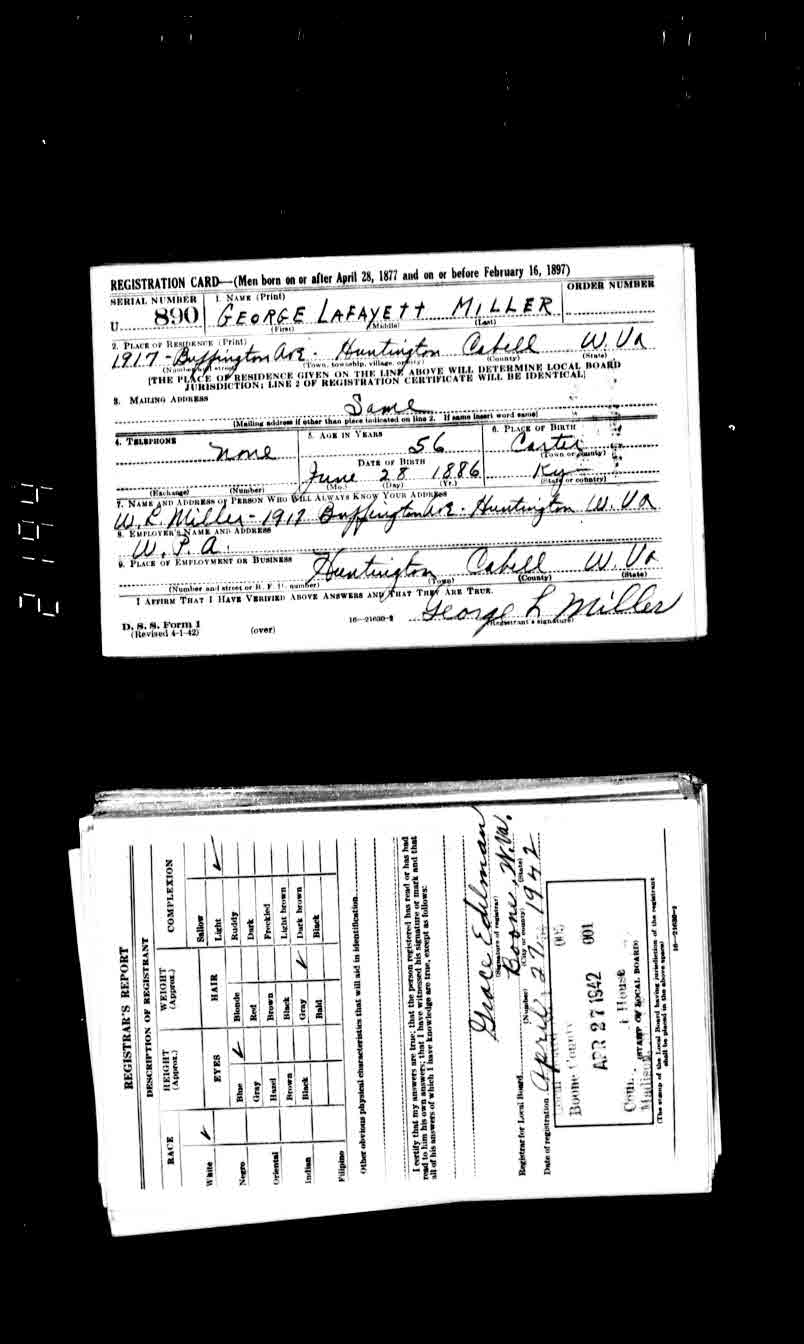 REGISTRATION CARD—(Men born on or after April 28, 1877 and on or before February 16, 1897)
SERIAL NUMBER 1. NAME (Print) ORDER NUMBER
U 890 GEORGE LAFAYETT MILLER
(First) (Middle) (Last)
2. PLACE OF RESIDENCE (Print)
1917 - Buffington Ave. Huntington Cabell W. Va
(Number and street) (Town, township, village, or city) (County) (State)
[THE PLACE OF RESIDENCE GIVEN ON THE LINE ABOVE WILL DETERMINE LOCAL BOARD
JURISDICTION; LINE 2 OF REGISTRATION CERTIFICATE WILL BE IDENTICAL]
3. MAILING ADDRESS
Same
(Mailing address if other than place indicated on line 2. If same insert word same)
4. TELEPHONE 5. AGE IN YEARS 6. PLACE OF BIRTH
None 56 Carter
(Town or county)
DATE OF BIRTH
June 28 1886 Ky
(Exchange) (Number) (Mo.) (Day) (Yr.) (State or country)
7. NAME AND ADDRESS OF PERSON WHO WILL ALWAYS KNOW YOUR ADDRESS
Miller - 1917 Buffington Ave. Huntington W. Va
8. EMPLOYER'S NAME AND ADDRESS
W. P. A.
9. PLACE OF EMPLOYMENT OR BUSINESS
Huntington Cabell W. Va
(Number and street or R. F. D. number) (Town) (County) (State)
I AFFIRM THAT I HAVE VERIFIED ABOVE ANSWERS AND THAT THEY ARE TRUE.
George L Miller
D. S. S. Form 1
(Revised 4-1-42) (over) 16—21630-2 (Registrant's signature)
2194
REGISTRAR'S REPORT
DESCRIPTION OF REGISTRANT
RACE HEIGHT (Approx.) WEIGHT (Approx.) COMPLEXION
EYES HAIR
White ✓ Sallow
Light ✓
Negro Blue ✓ Blonde Ruddy
Gray Red Dark
Oriental Hazel Brown Freckled
Brown Black Light brown
Indian Black Gray ✓ Dark brown
Bald Black
Filipino
Other obvious physical characteristics that will aid in identification
I certify that my answers are true; that the person registered has read or has had
read to him his own answers; that I have witnessed his signature or mark and that
all of his answers of which I have knowledge are true, except as follows:
Grace Edelman
(Signature of registrar)
Registrar for Local Board Boone, W. Va.
(Number) (City or county) (State)
Date of registration April 27, 1942
Boone County 005
APR 27 1942 001
House
Madison
(STAMP OF LOCAL BOARD)
(The stamp of the Local Board having jurisdiction of the registrant
shall be placed in the above space)
16—21630-2